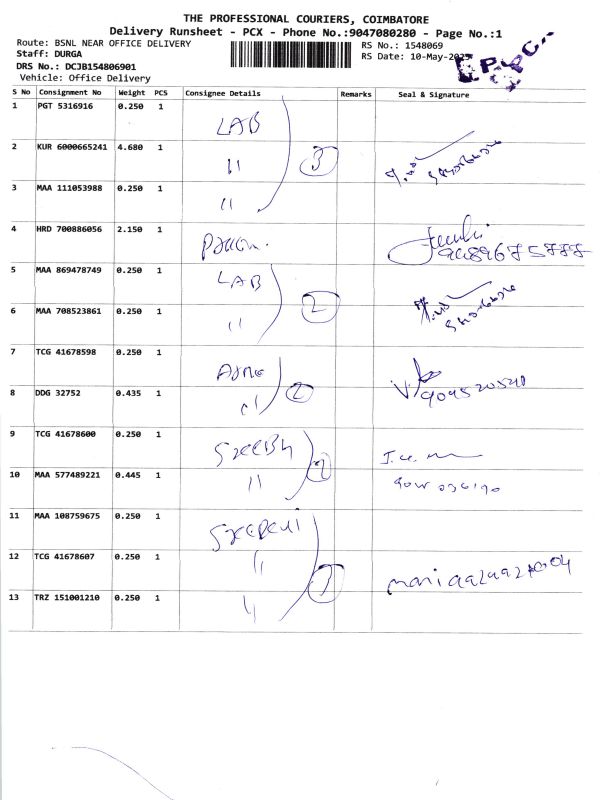 THE PROFESSIONAL COURIERS, COIMBATORE
Delivery Runsheet - PCX - Phone No.:9047080280 - Page No.:1
Route: BSNL NEAR OFFICE DELIVERY
RS No.: 1548069
Staff: DURGA
RS Date: 10-May-
DRS No.: DCJB154806901
Vehicle: Office Delivery
S No Consignment No Weight PCS Consignee Details Remarks Seal & Signature
1 PGT 5316916 0.250 1 LAB
2 KUR 6000665241 4.680 1 11 3
3 MAA 111053988 0.250 1 11
4 HRD 700886056 2.150 1
5 MAA 869478749 0.250 1 LAB
6 MAA 708523861 0.250 1 11 2
7 TCG 41678598 0.250 1
8 DDG 32752 0.435 1 11 2
9 TCG 41678600 0.250 1
10 MAA 577489221 0.445 1 11 2
11 MAA 108759675 0.250 1
12 TCG 41678607 0.250 1 11
13 TRZ 151001210 0.250 1 11 3